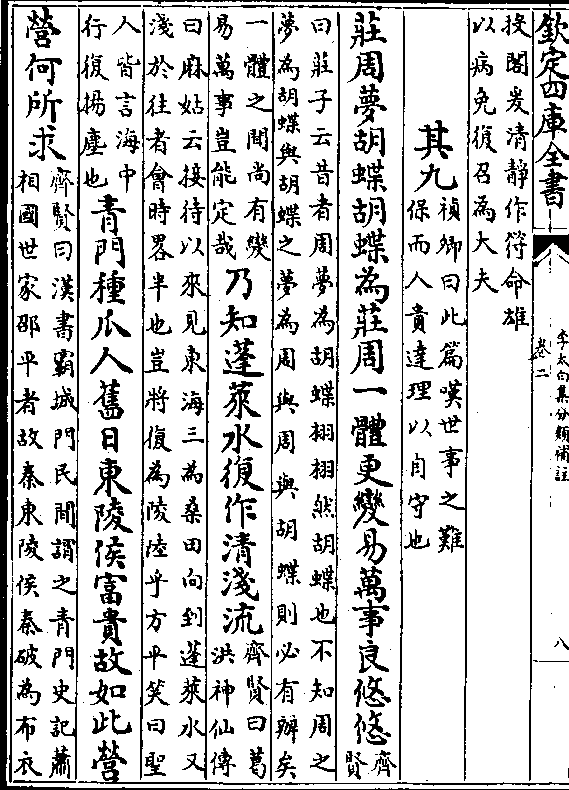 欽定四庫全書
李太白集分類補註
卷二
八
投閣爰清靜作符命雄
以病免復召為大夫
其九
禎卿曰此篇嘆世事之難
保而人貴達理以自守也
莊周夢胡蝶胡蝶為莊周一體更變易萬事良悠悠
齊
賢
曰莊子云昔者周夢為胡蝶栩栩然胡蝶也不知周之
夢為胡蝶與胡蝶之夢為周與周與胡蝶則必有辧矣
一體之間尚有變
易萬事豈能定哉
乃知蓬萊水復作清淺流
齊賢曰葛
洪神仙傳
曰麻姑云接待以來見東海三為桑田向到蓬萊水又
淺於往者會時畧半也豈將復為陵陸乎方平笑曰聖
人皆言海中
行復揚塵也
青門種瓜人舊日東陵侯富貴故如此營
營何所求
齊賢曰漢書霸城門民間謂之青門史記蕭
相國世家邵平者故秦東陵侯秦破為布衣